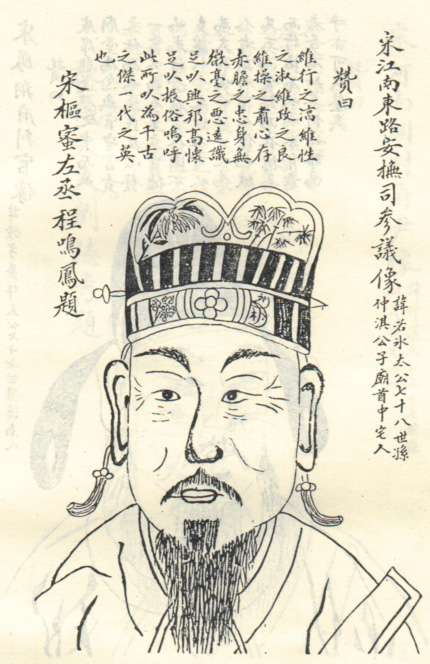 宋江南東路安撫司參議像
諱若氷太公七十八世孫
仲淇公子廟首中宅人
贊曰
維行之高維性
之淑維政之良
維操之肅心存
赤膽之忠身無
微毫之悪遠識
足以興邦高懷
足以振俗嗚呼
此所以為千古
之傑一代之英
也
宋樞蜜左丞程鳴鳳題